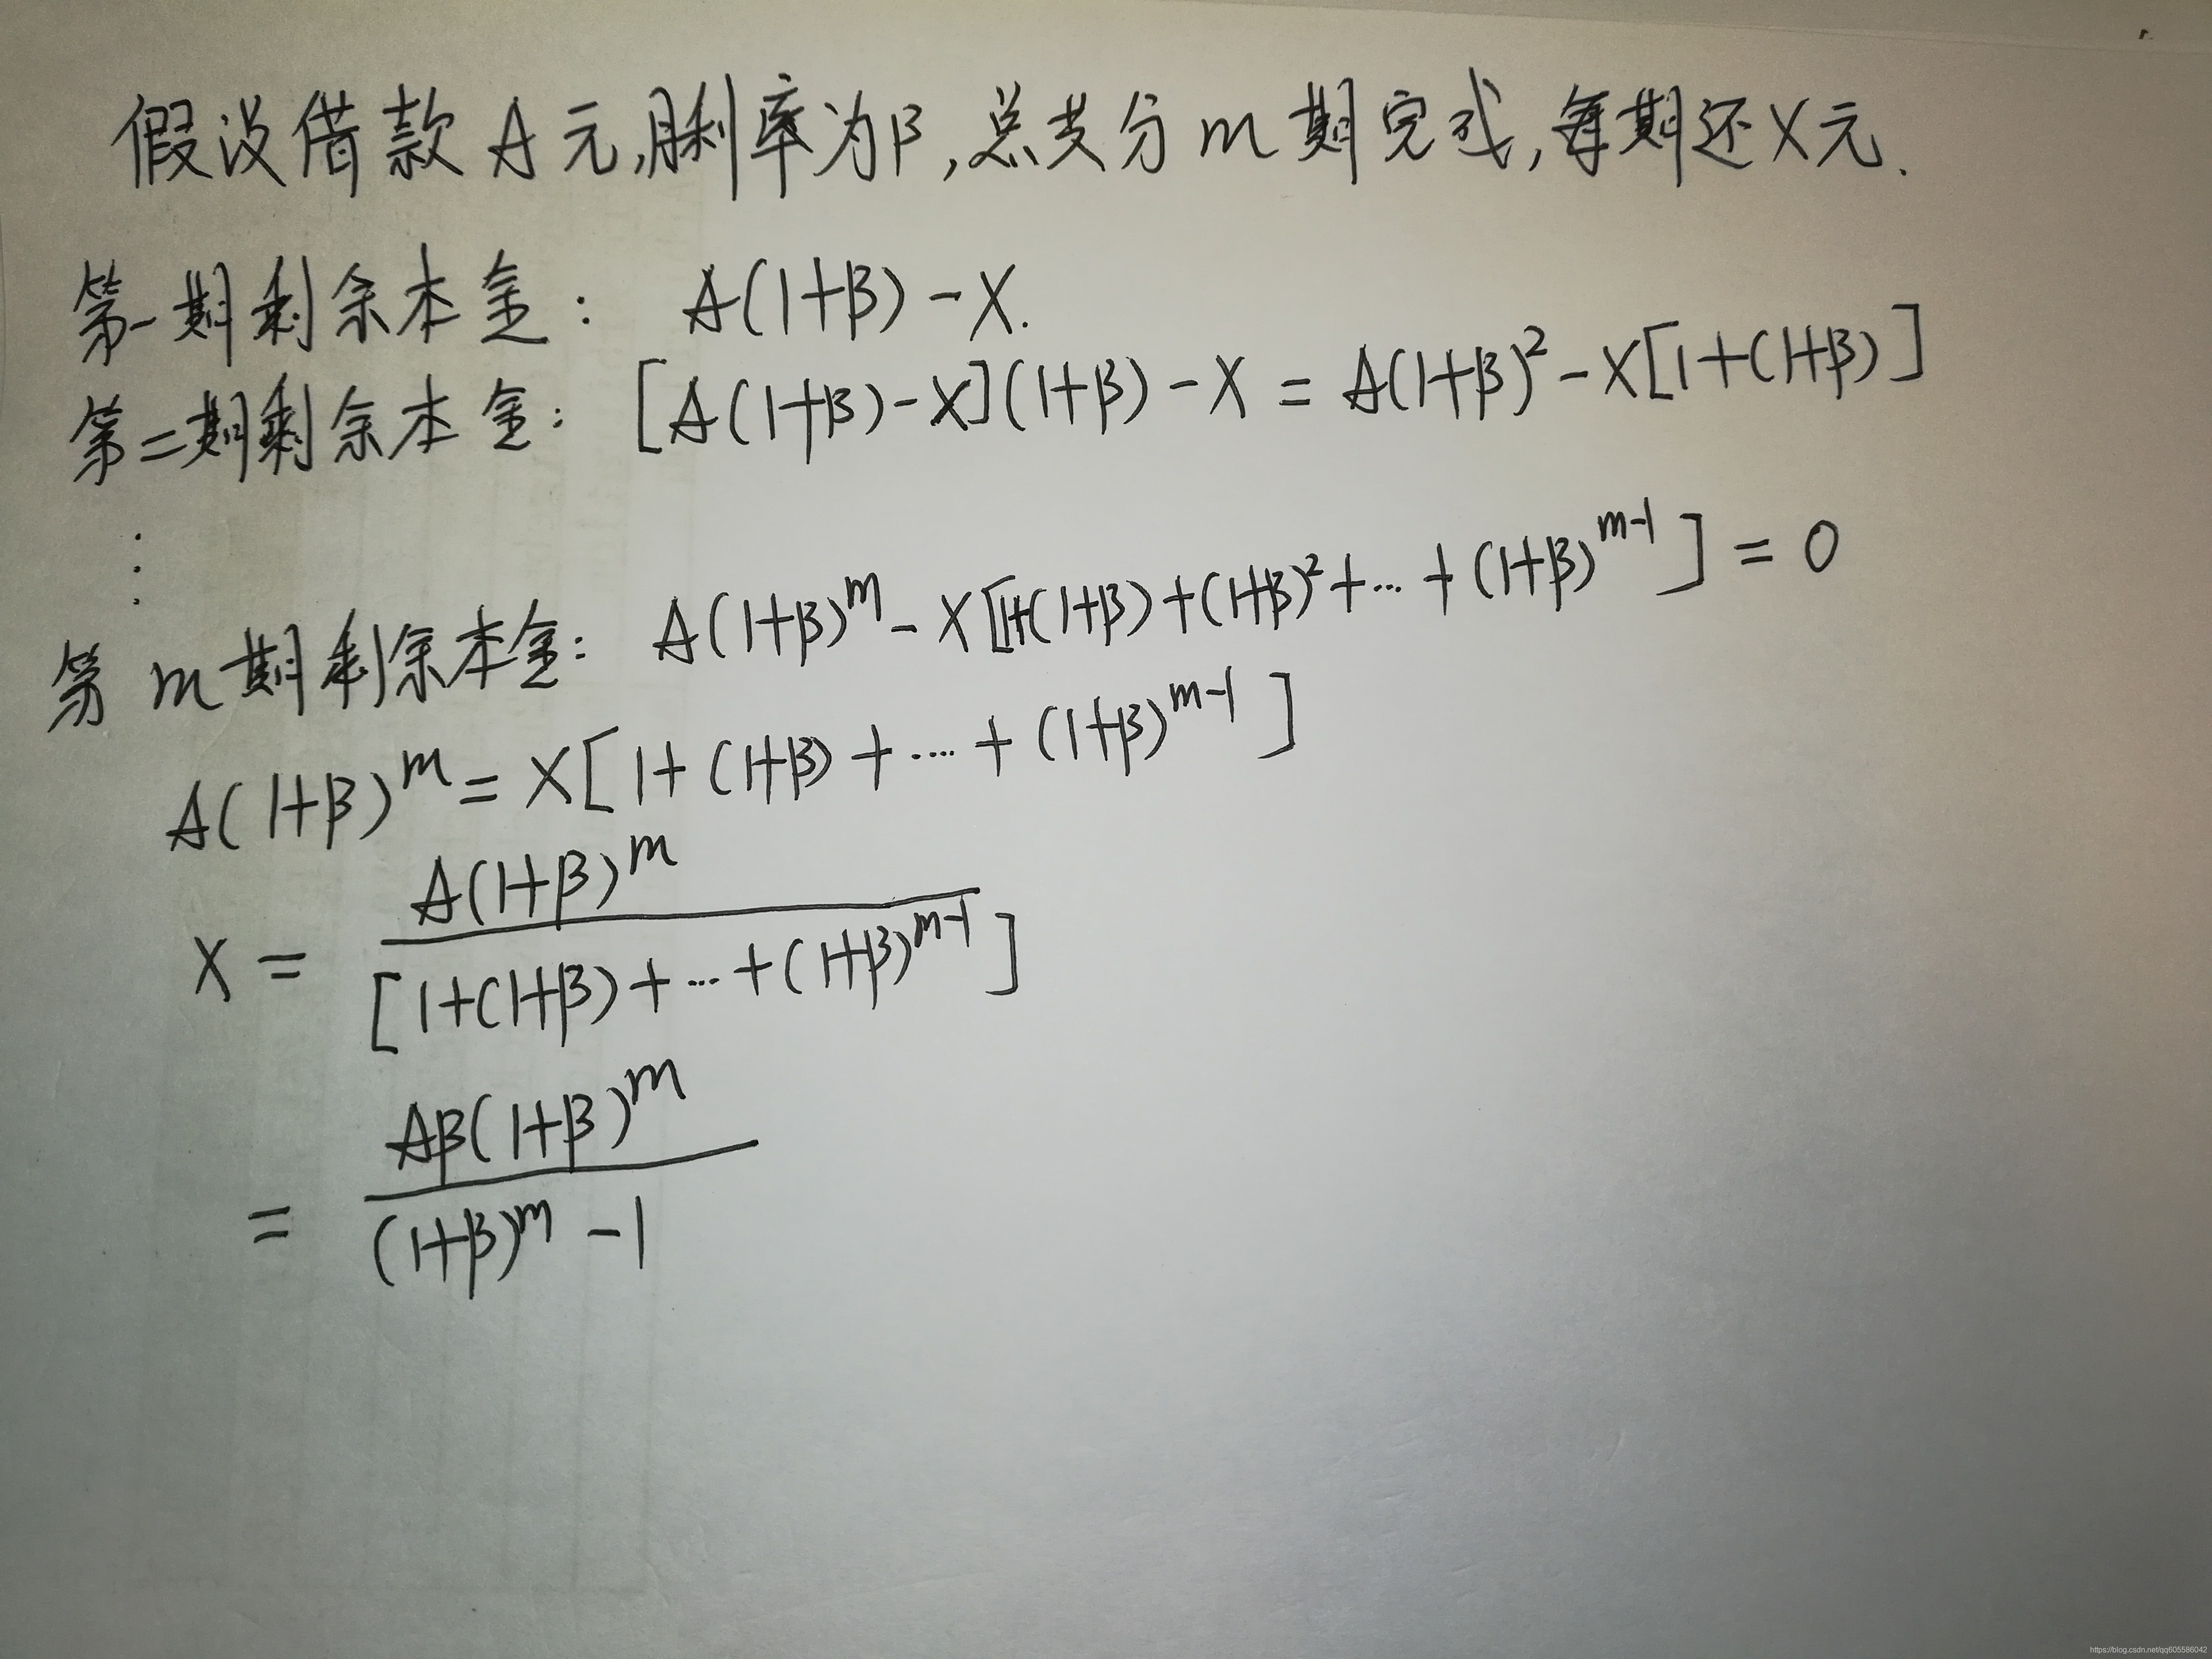 假设借款A元,月利率为β,总共分m期完成,每期还X元.
第一期剩余本金: A(1+β)-X.
第二期剩余本金: [A(1+β)-X](1+β)-X = A(1+β)²-X[1+(1+β)]
⋮
第m期剩余本金: A(1+β)^m-X[1+(1+β)+(1+β)²+…+(1+β)^{m-1}]=0
A(1+β)^m=X[1+(1+β)+…+(1+β)^{m-1}]
X = \frac{A(1+β)^m}{[1+(1+β)+…+(1+β)^{m-1}]}
= \frac{Aβ(1+β)^m}{(1+β)^m-1}
https://blog.csdn.net/qq605586042